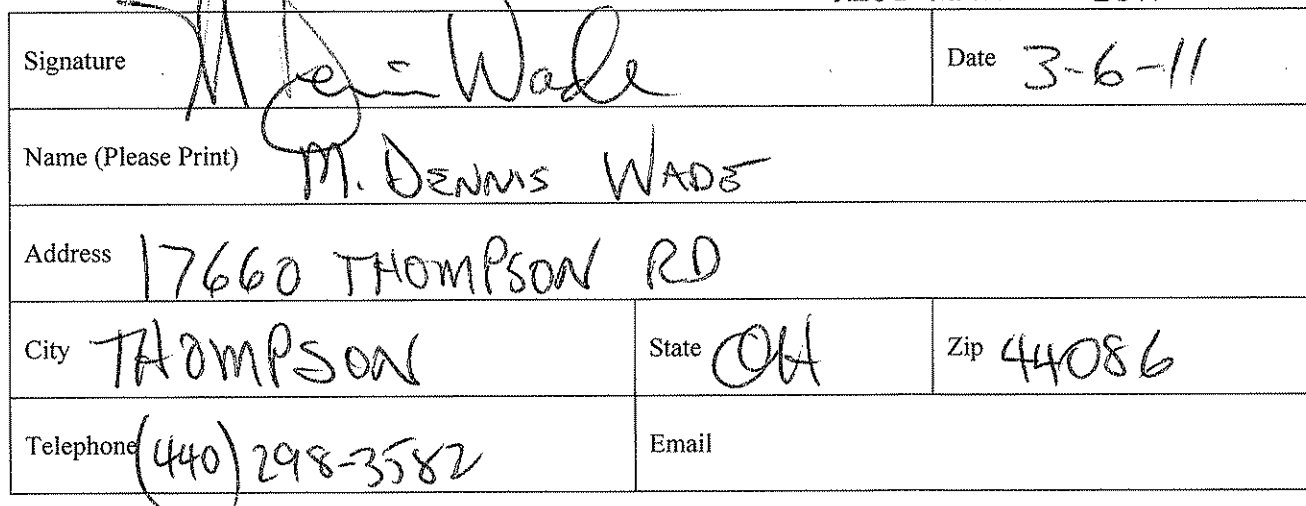 Signature M Dennis Wade Date 3-6-11
Name (Please Print) M. DENNIS WADE
Address 17660 THOMPSON RD
City THOMPSON State OH Zip 44086
Telephone (440) 298-3582 Email